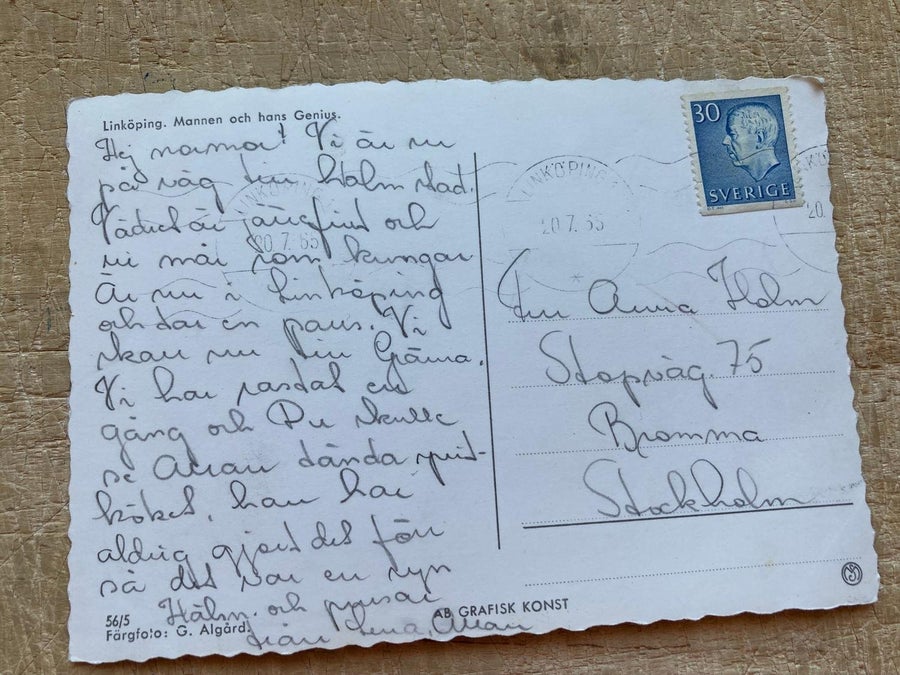 Linköping. Mannen och hans Genius.
Hej mamma! Vi är nu
på väg till Halmstad.
Vädret är jättefint och
vi mår som kungar
Är nu i Linköping
och tar en paus. Vi
skall nu till Gränna.
Vi har rastat en
gång och Du skulle
se Allan tända sprit-
köket, han har
aldrig gjort det förr
så det var en syn
Hälsn. och pussar
från Lena, Allan
56/5
Färgfoto: G. Algård.
AB GRAFISK KONST
30
SVERIGE
LINKÖPING
20.7.65
LINKÖPING
20.7.65
20.
Fru Anna Holm
Stopväg. 75
Bromma
Stockholm